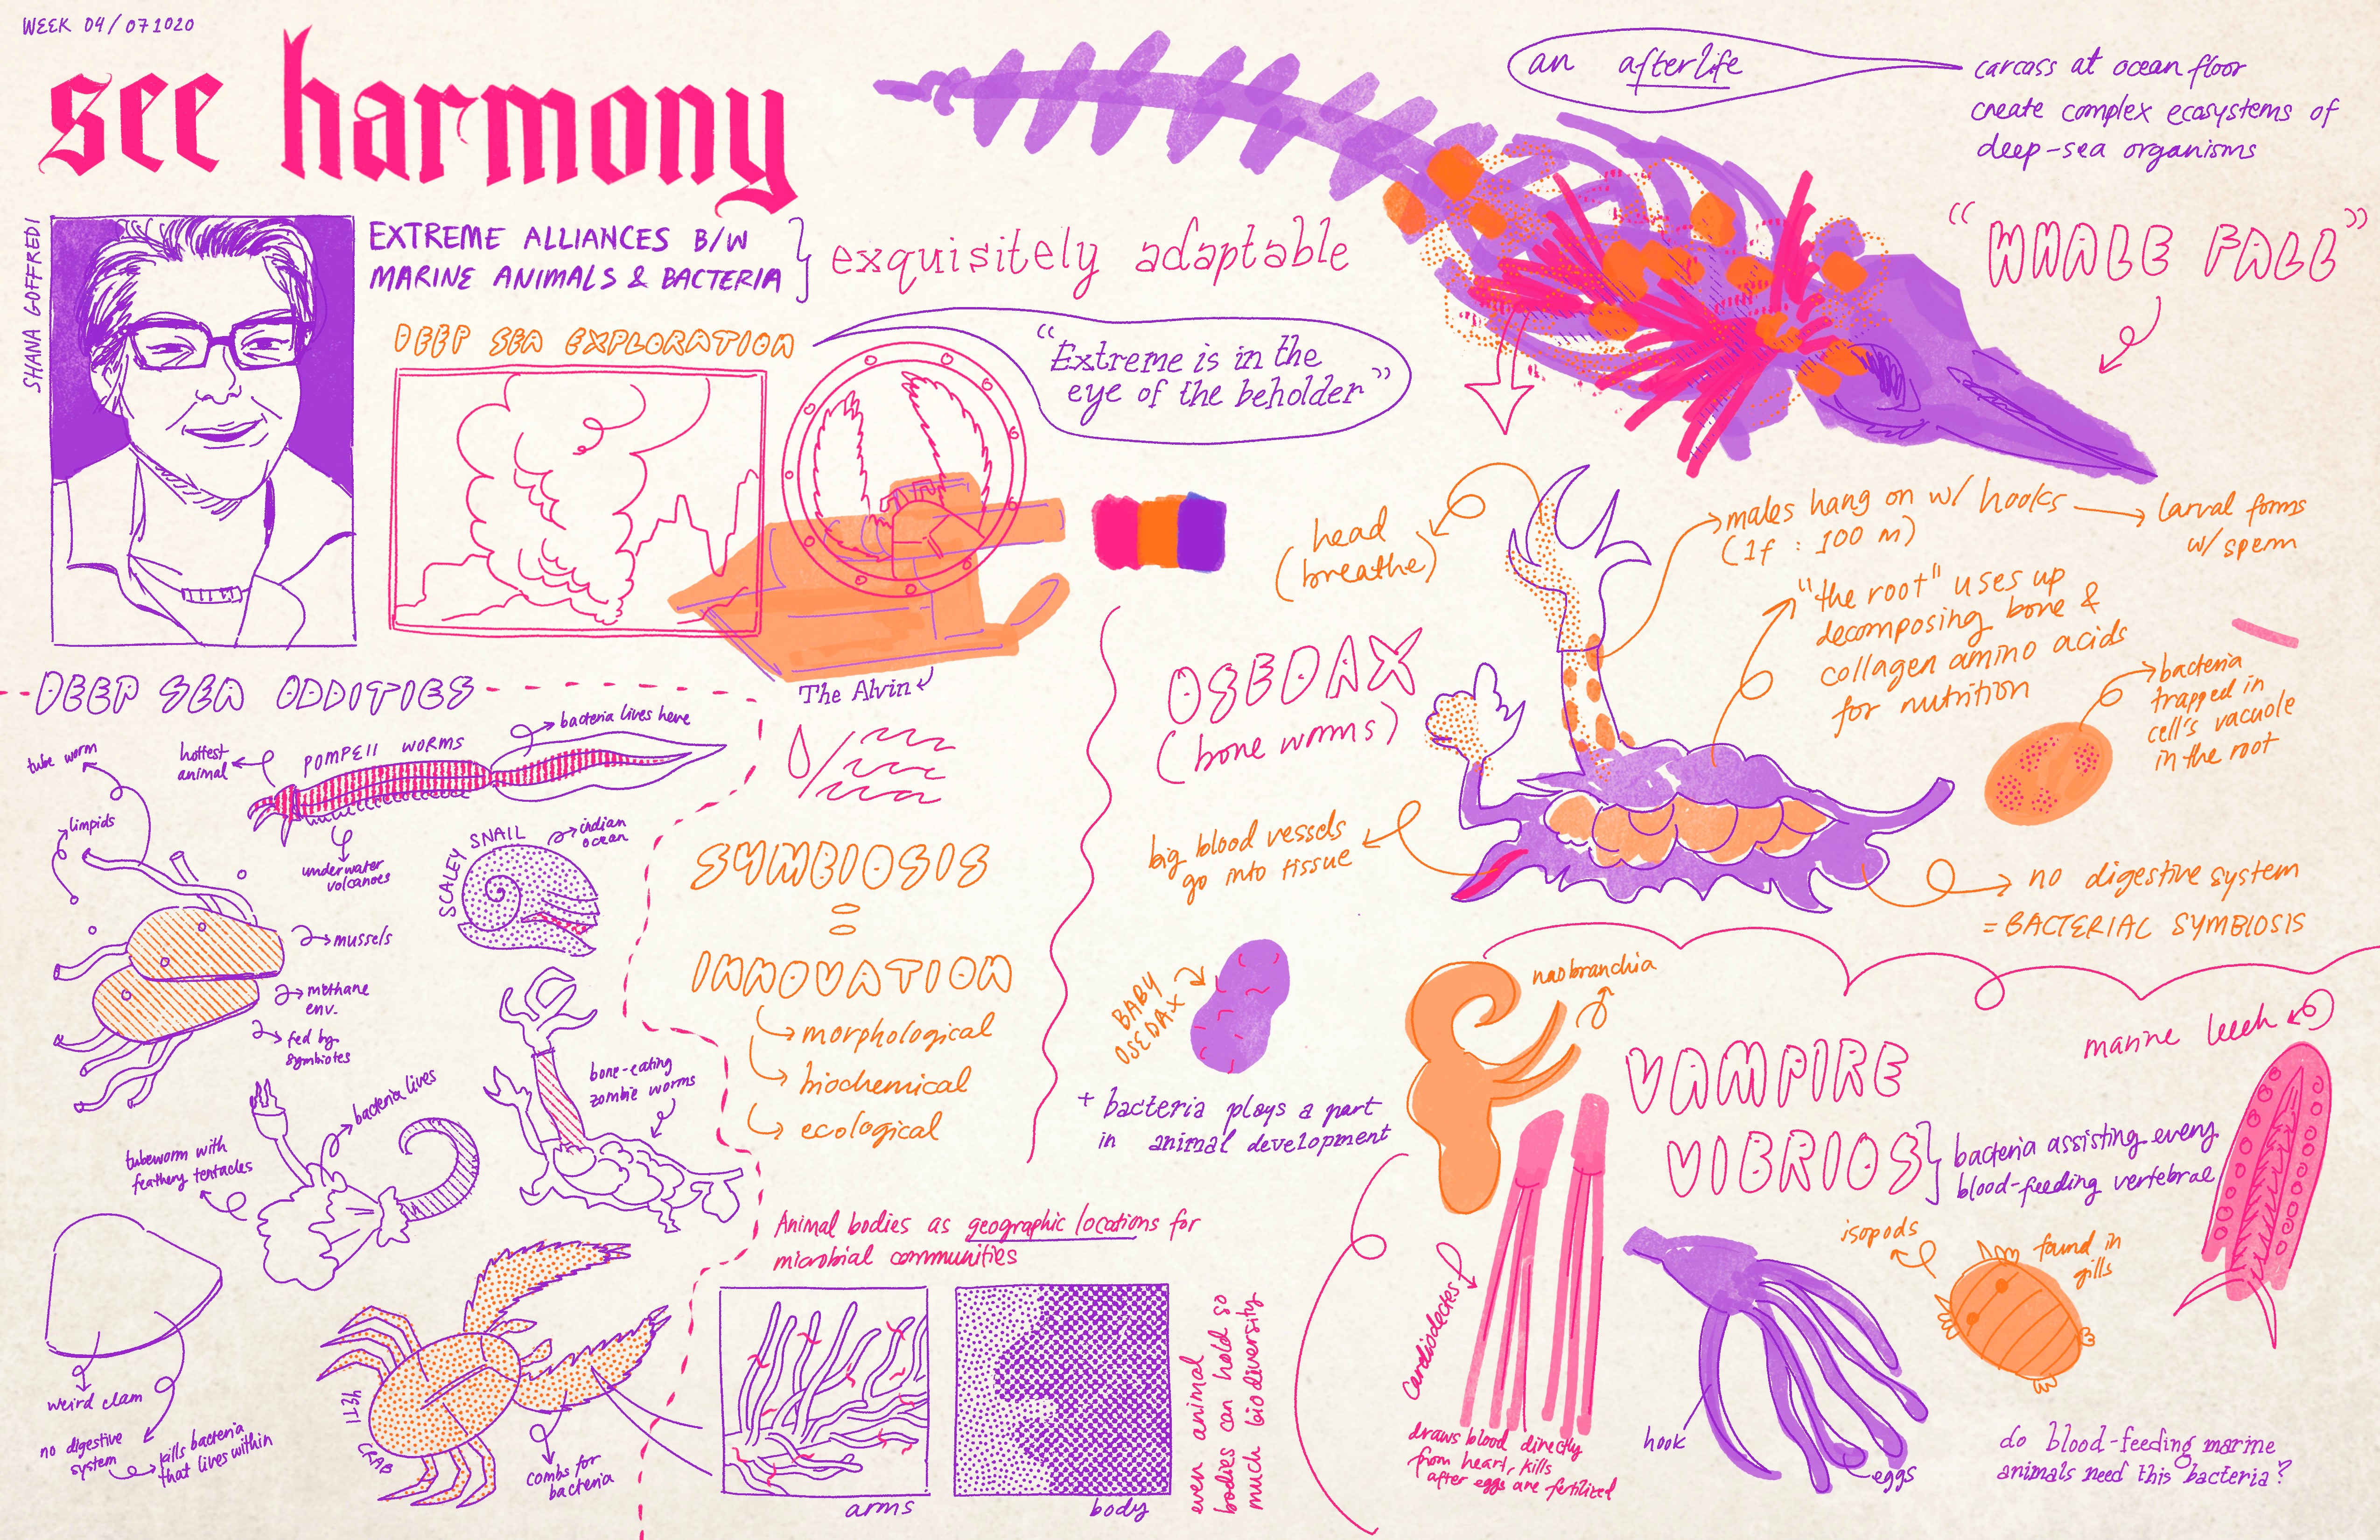 WEEK 04/071020
see harmony
SHANA GOFFREDI
EXTREME ALLIANCES B/W
MARINE ANIMALS & BACTERIA
exquisitely adaptable
DEEP SEA EXPLORATION
"Extreme is in the
eye of the beholder"
The Alvin
an afterlife
carcass at ocean floor
create complex ecosystems of
deep-sea organisms
"WHALE FALL"
DEEP SEA ODDITIES
tube worm
hottest
animal
POMPEII WORMS
bacteria lives here
limpids
underwater
volcanoes
SCALEY SNAIL
indian
ocean
mussels
methane
env.
fed by
symbiotes
bacteria lives
tubeworm with
feathery tentacles
bone-eating
zombie worms
weird clam
no digestive
system
kills bacteria
that lives within
YETI
CRAB
combs for
bacteria
SYMBIOSIS
=
INNOVATION
morphological
biochemical
ecological
Animal bodies as geographic locations for
microbial communities
arms
body
even animal
bodies can hold so
much biodiversity
OSEDAX
(bone worms)
head
(breathe)
males hang on w/ hooks
(1f : 100 m)
larval forms
w/ sperm
"the root" uses up
decomposing bone &
collagen amino acids
for nutrition
bacteria
trapped in
cell's vacuole
in the root
big blood vessels
go into tissue
no digestive system
= BACTERIAL SYMBIOSIS
BABY
OSEDAX
+ bacteria plays a part
in animal development
VAMPIRE
VIBRIOS
bacteria assisting every
blood-feeding vertebral
marine leech
draws blood directly
from heart, kills
after eggs are fertilized
hook
eggs
isopods
found in
gills
do blood-feeding marine
animals need this bacteria?